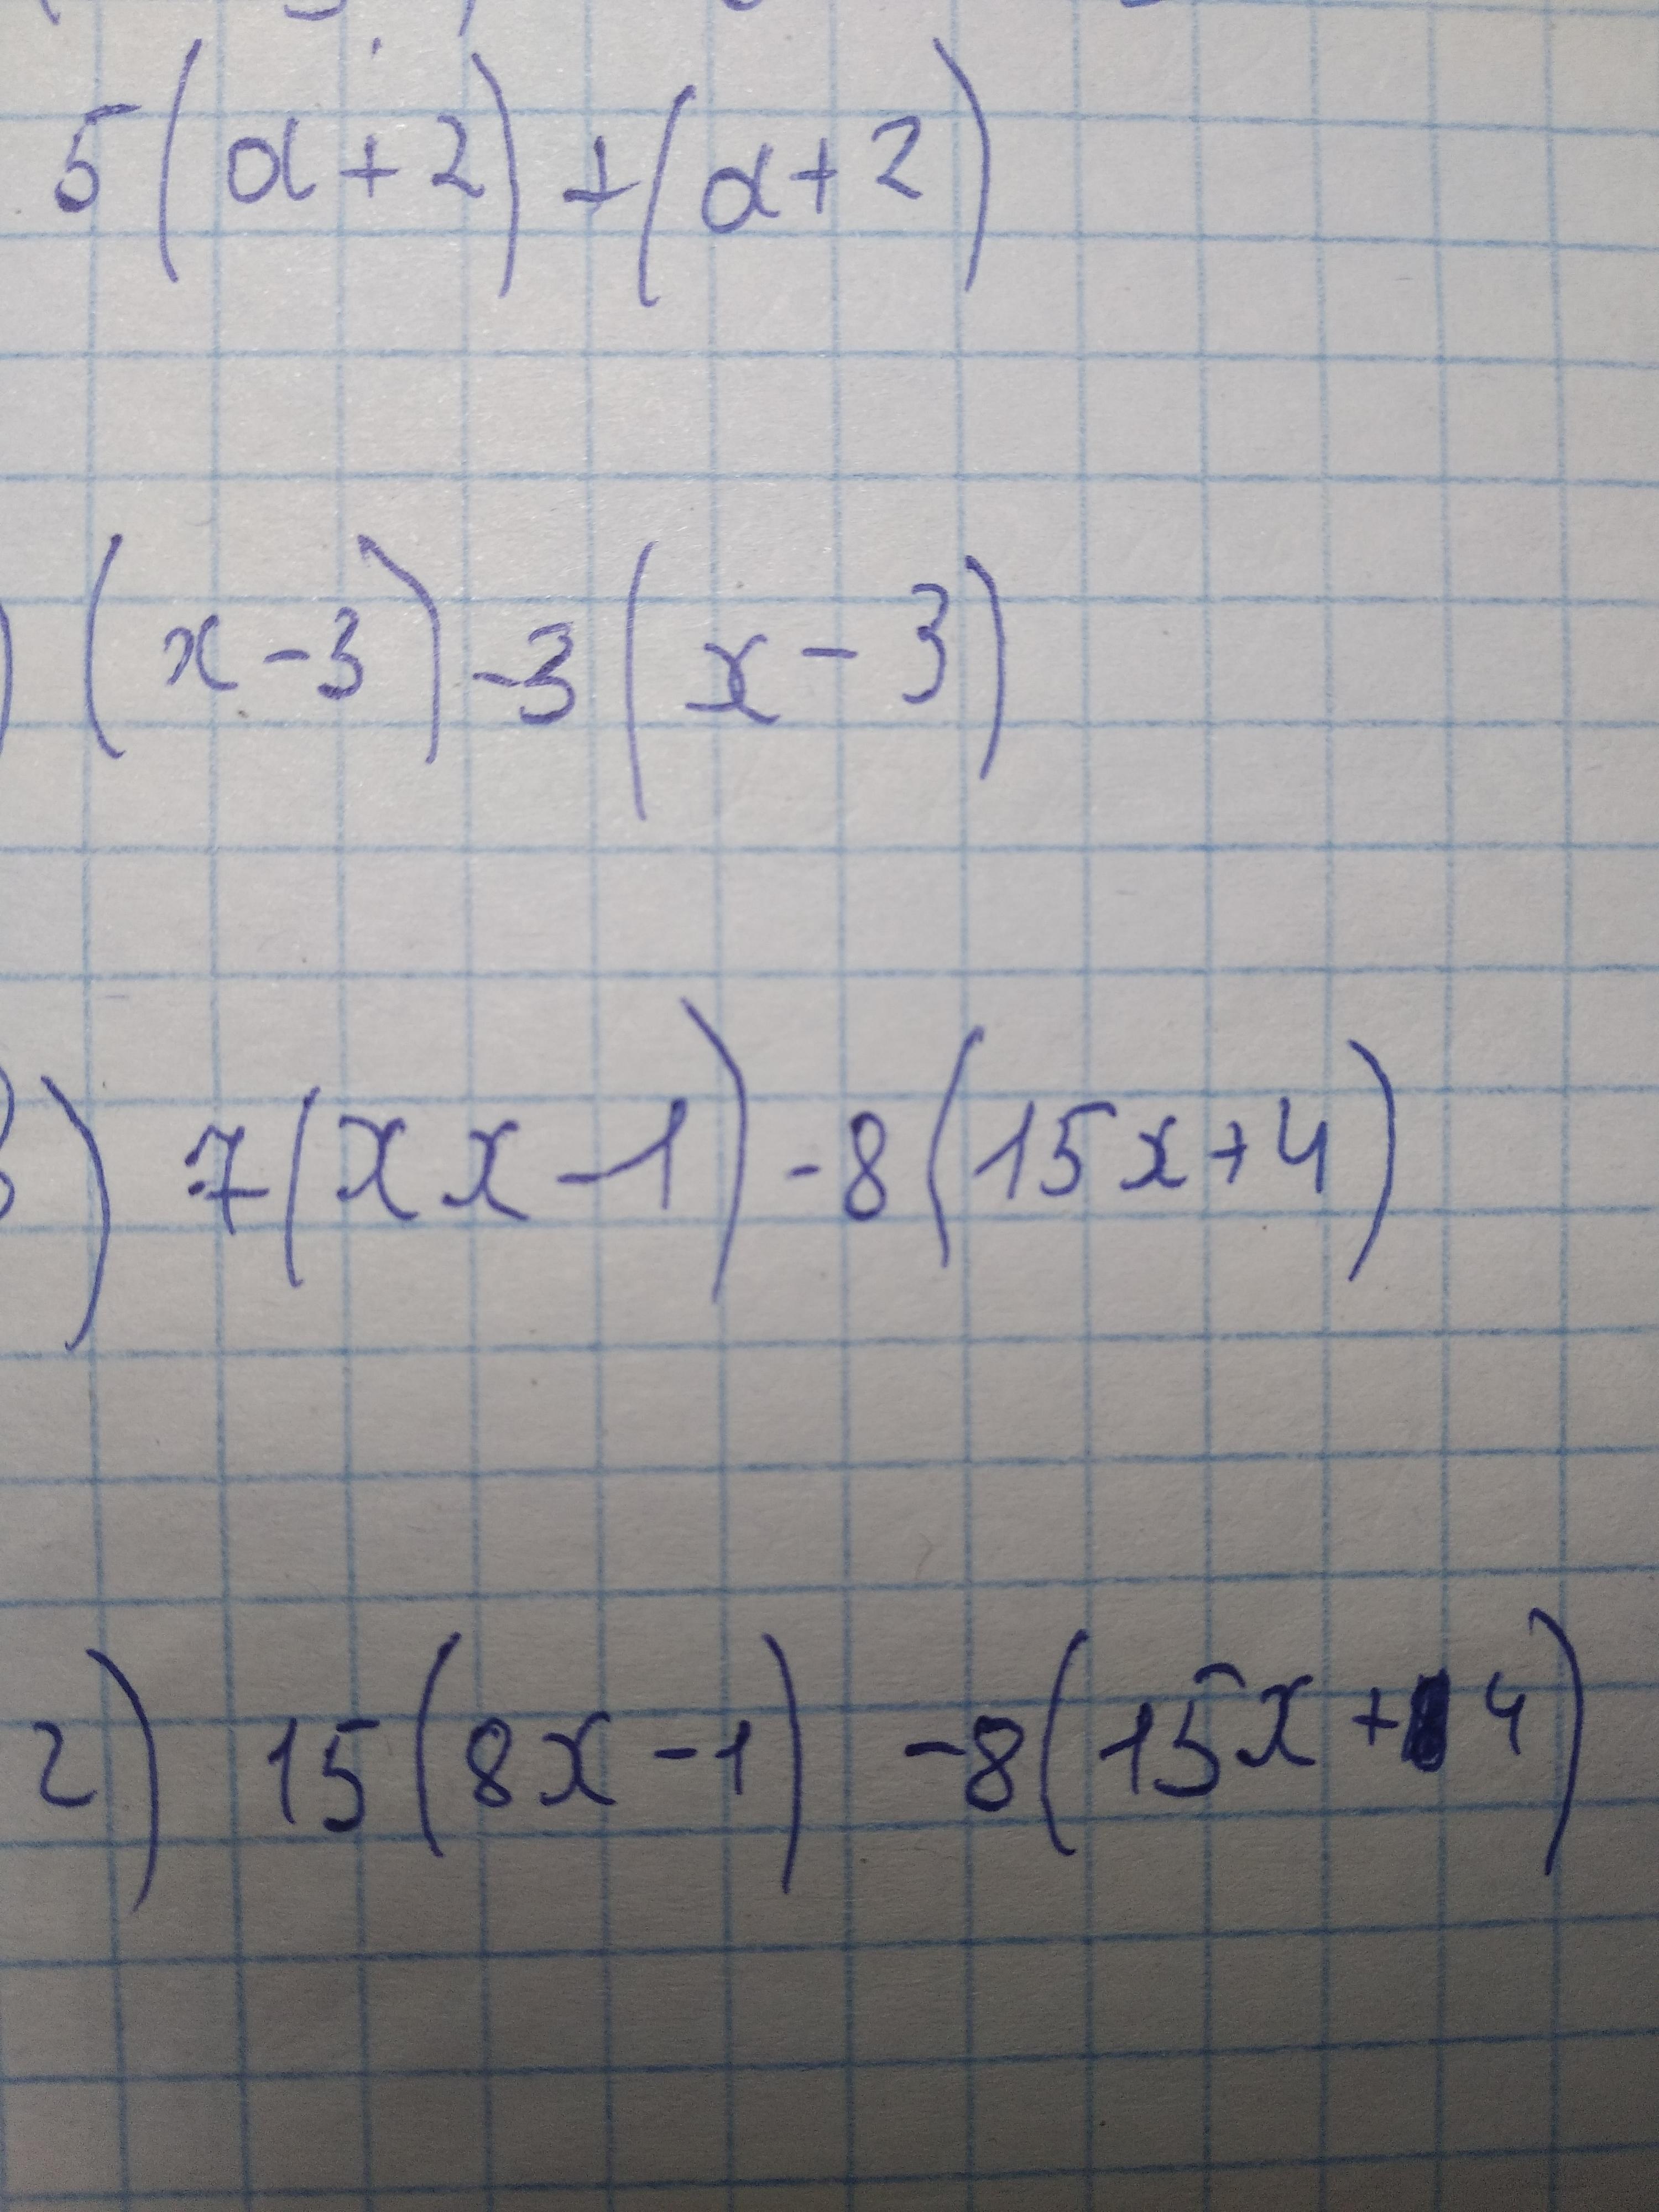 5(a+2)+(a+2)
) (x-3)-3(x-3)
) 7(xx-1)-8(15x+4)
2) 15(8x-1)-8(15x+4)